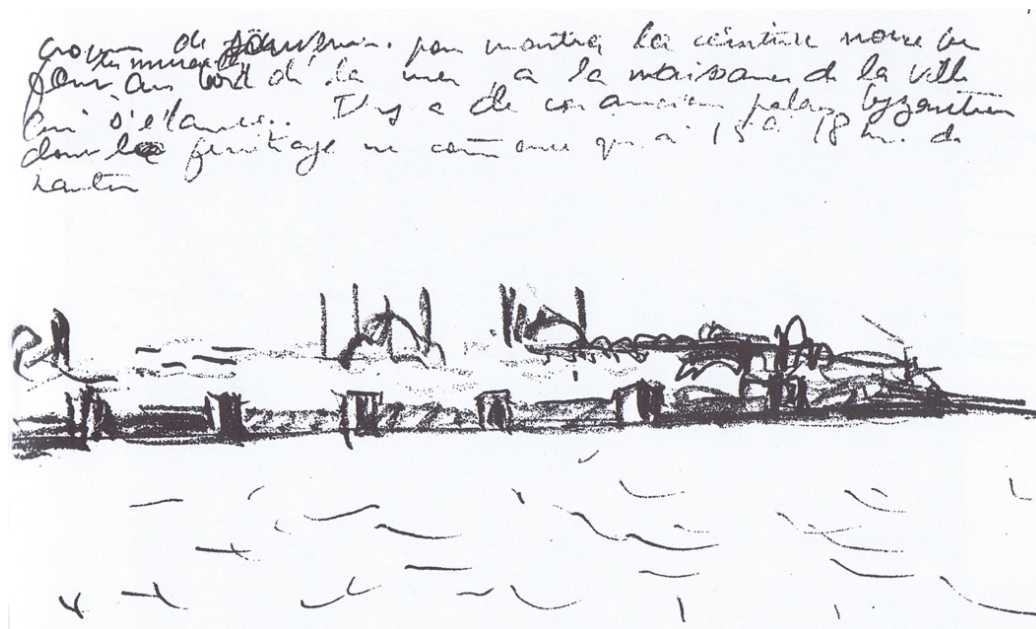 croquis de souvenir. pour montrer la ceinture noire
du mur au bord de la mer, à la naissance de la ville
qui s'élance.. Il y a de ces anciens palais byzantins
dont le fenêtrage ne commence qu'à 15 à 18 m. de
hauteur